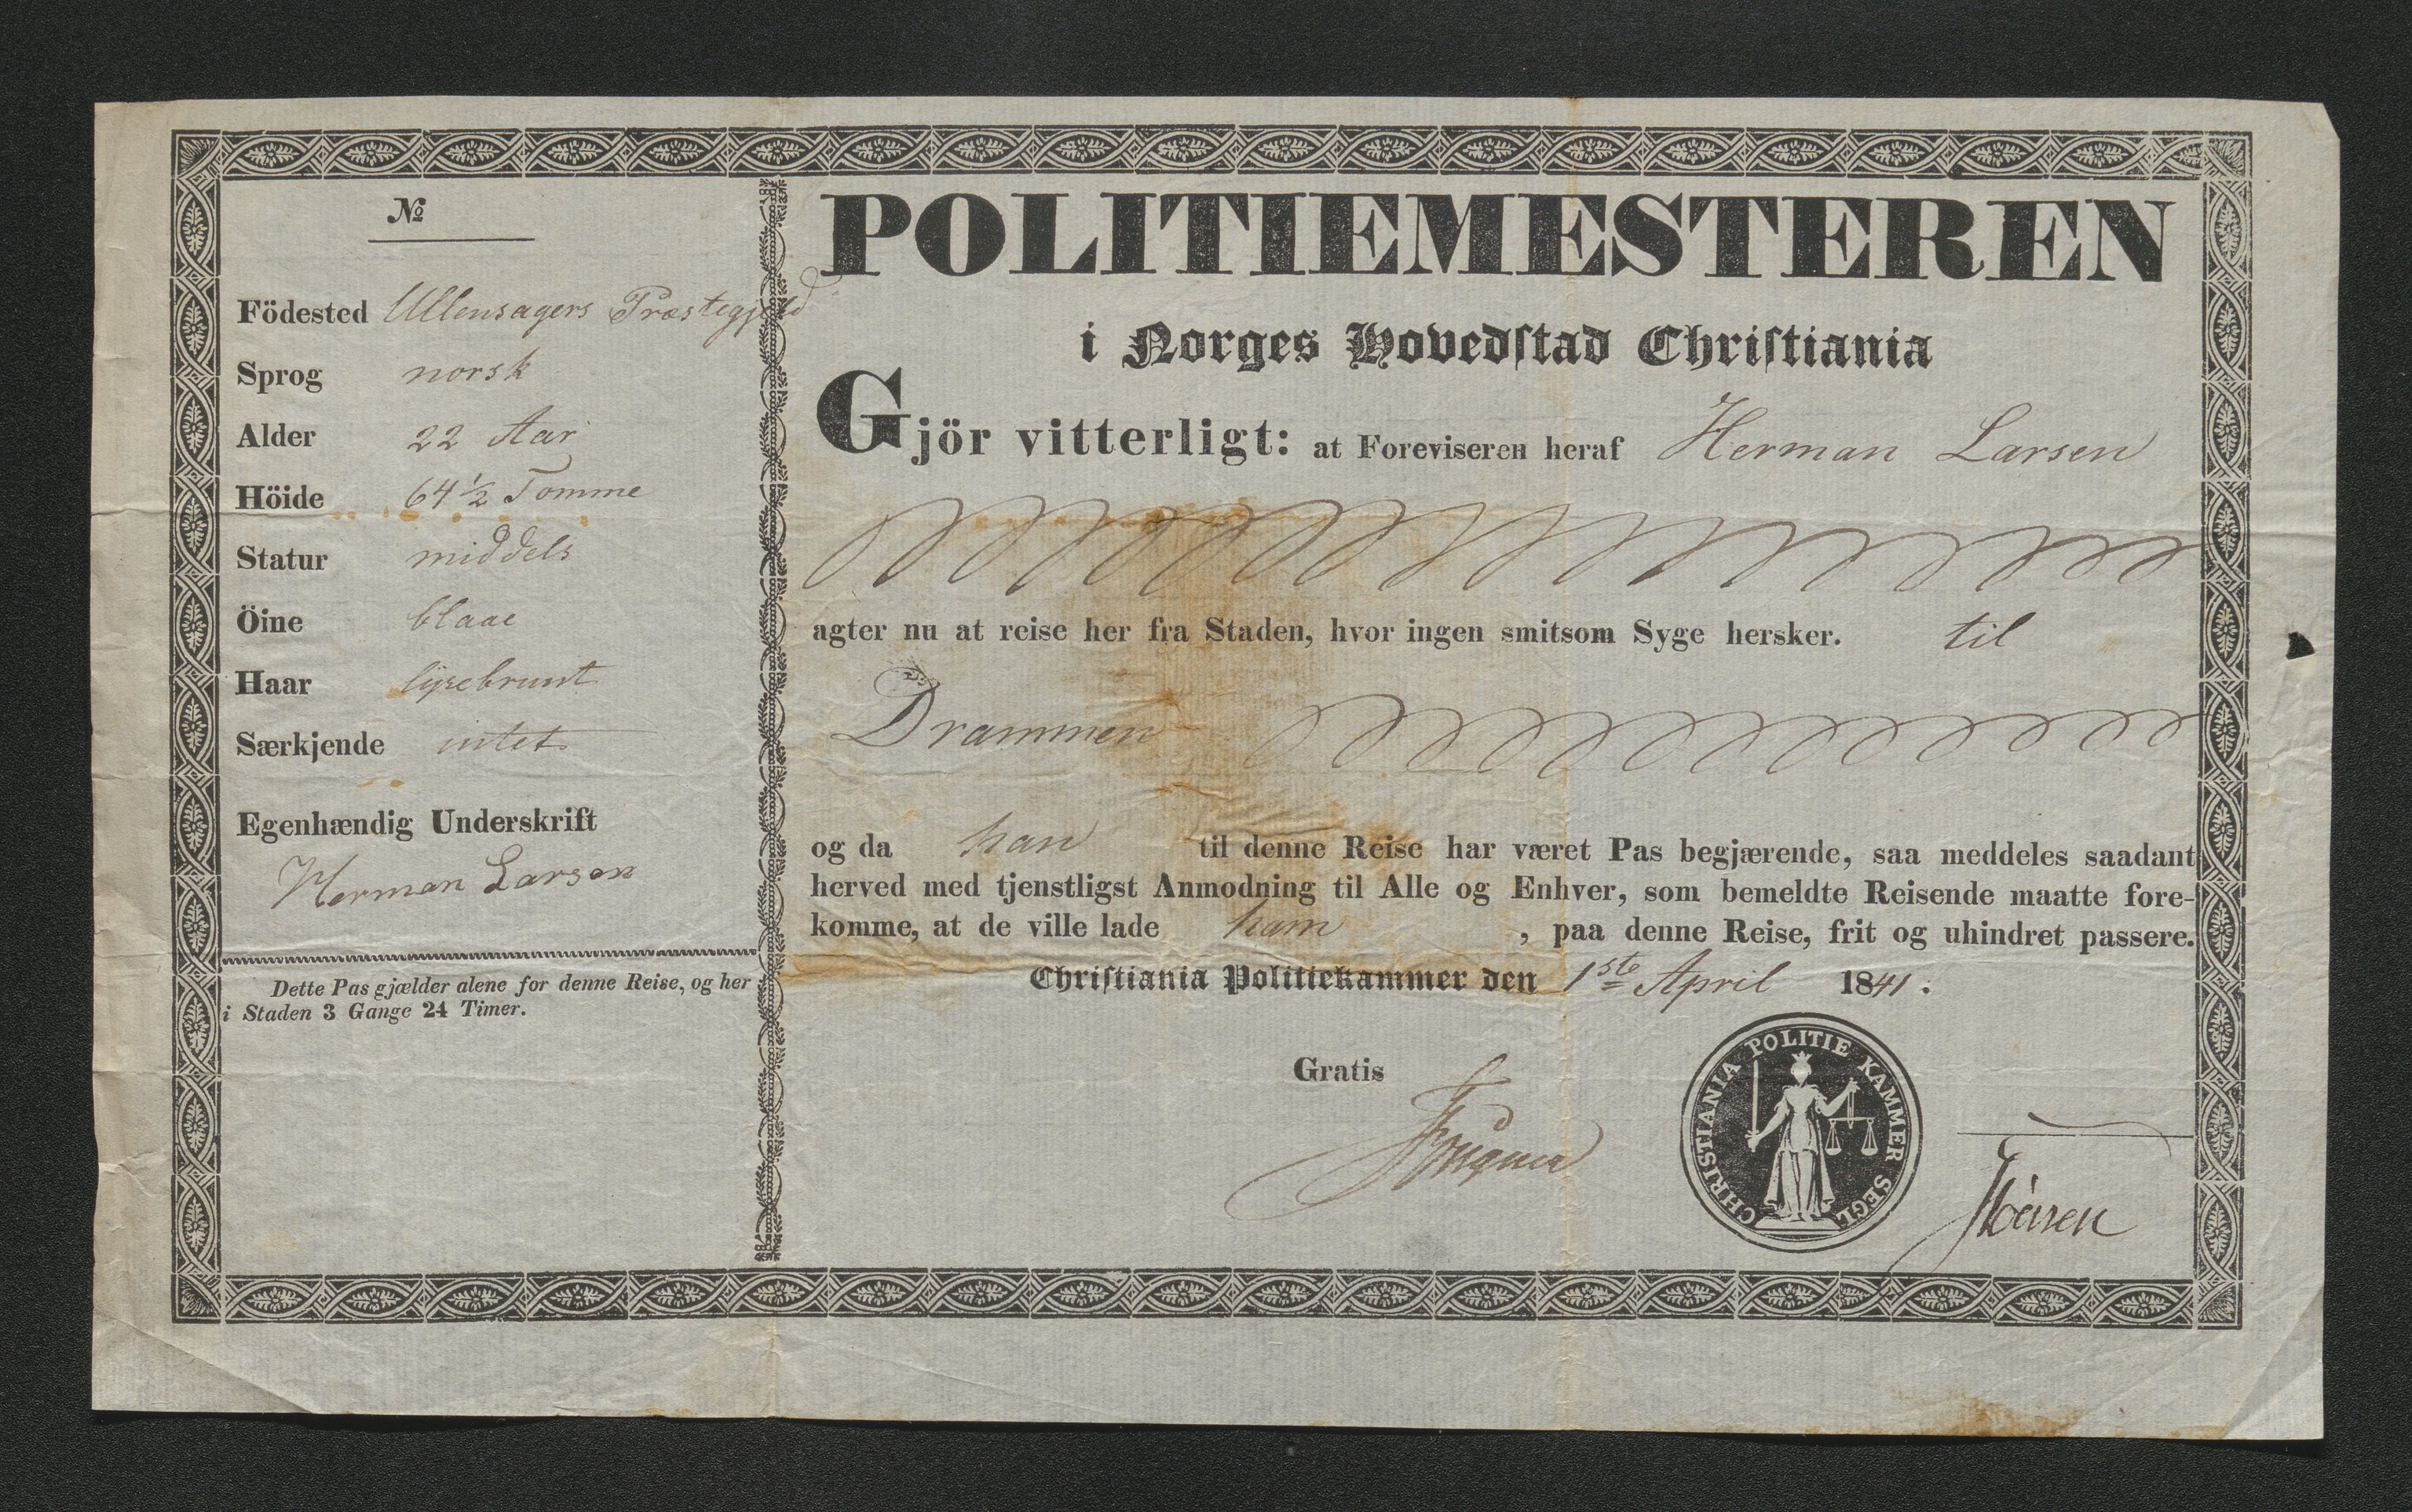 №
Födested Ullensagers Præstegjeld
Sprog norsk
Alder 22 Aar
Höide 64½ Tomme
Statur middels
Öine blaae
Haar lysebrunt
Særkjende intet
Egenhændig Underskrift
Herman Larsen
Dette Pas gjælder alene for denne Reise, og her
i Staden 3 Gange 24 Timer.
POLITIEMESTEREN
i Norges Hovedſtad Chriſtiania
Gjör vitterligt: at Foreviseren heraf Herman Larsen
agter nu at reise her fra Staden, hvor ingen smitsom Syge hersker. til
Drammen
og da han til denne Reise har været Pas begjærende, saa meddeles saadant
herved med tjenstligst Anmodning til Alle og Enhver, som bemeldte Reisende maatte fore-
komme, at de ville lade ham, paa denne Reise, frit og uhindret passere.
Chriſtiania Politiekammer den 1ste April 1841.
Gratis
CHRISTIANIA POLITIE KAMMER SEGL